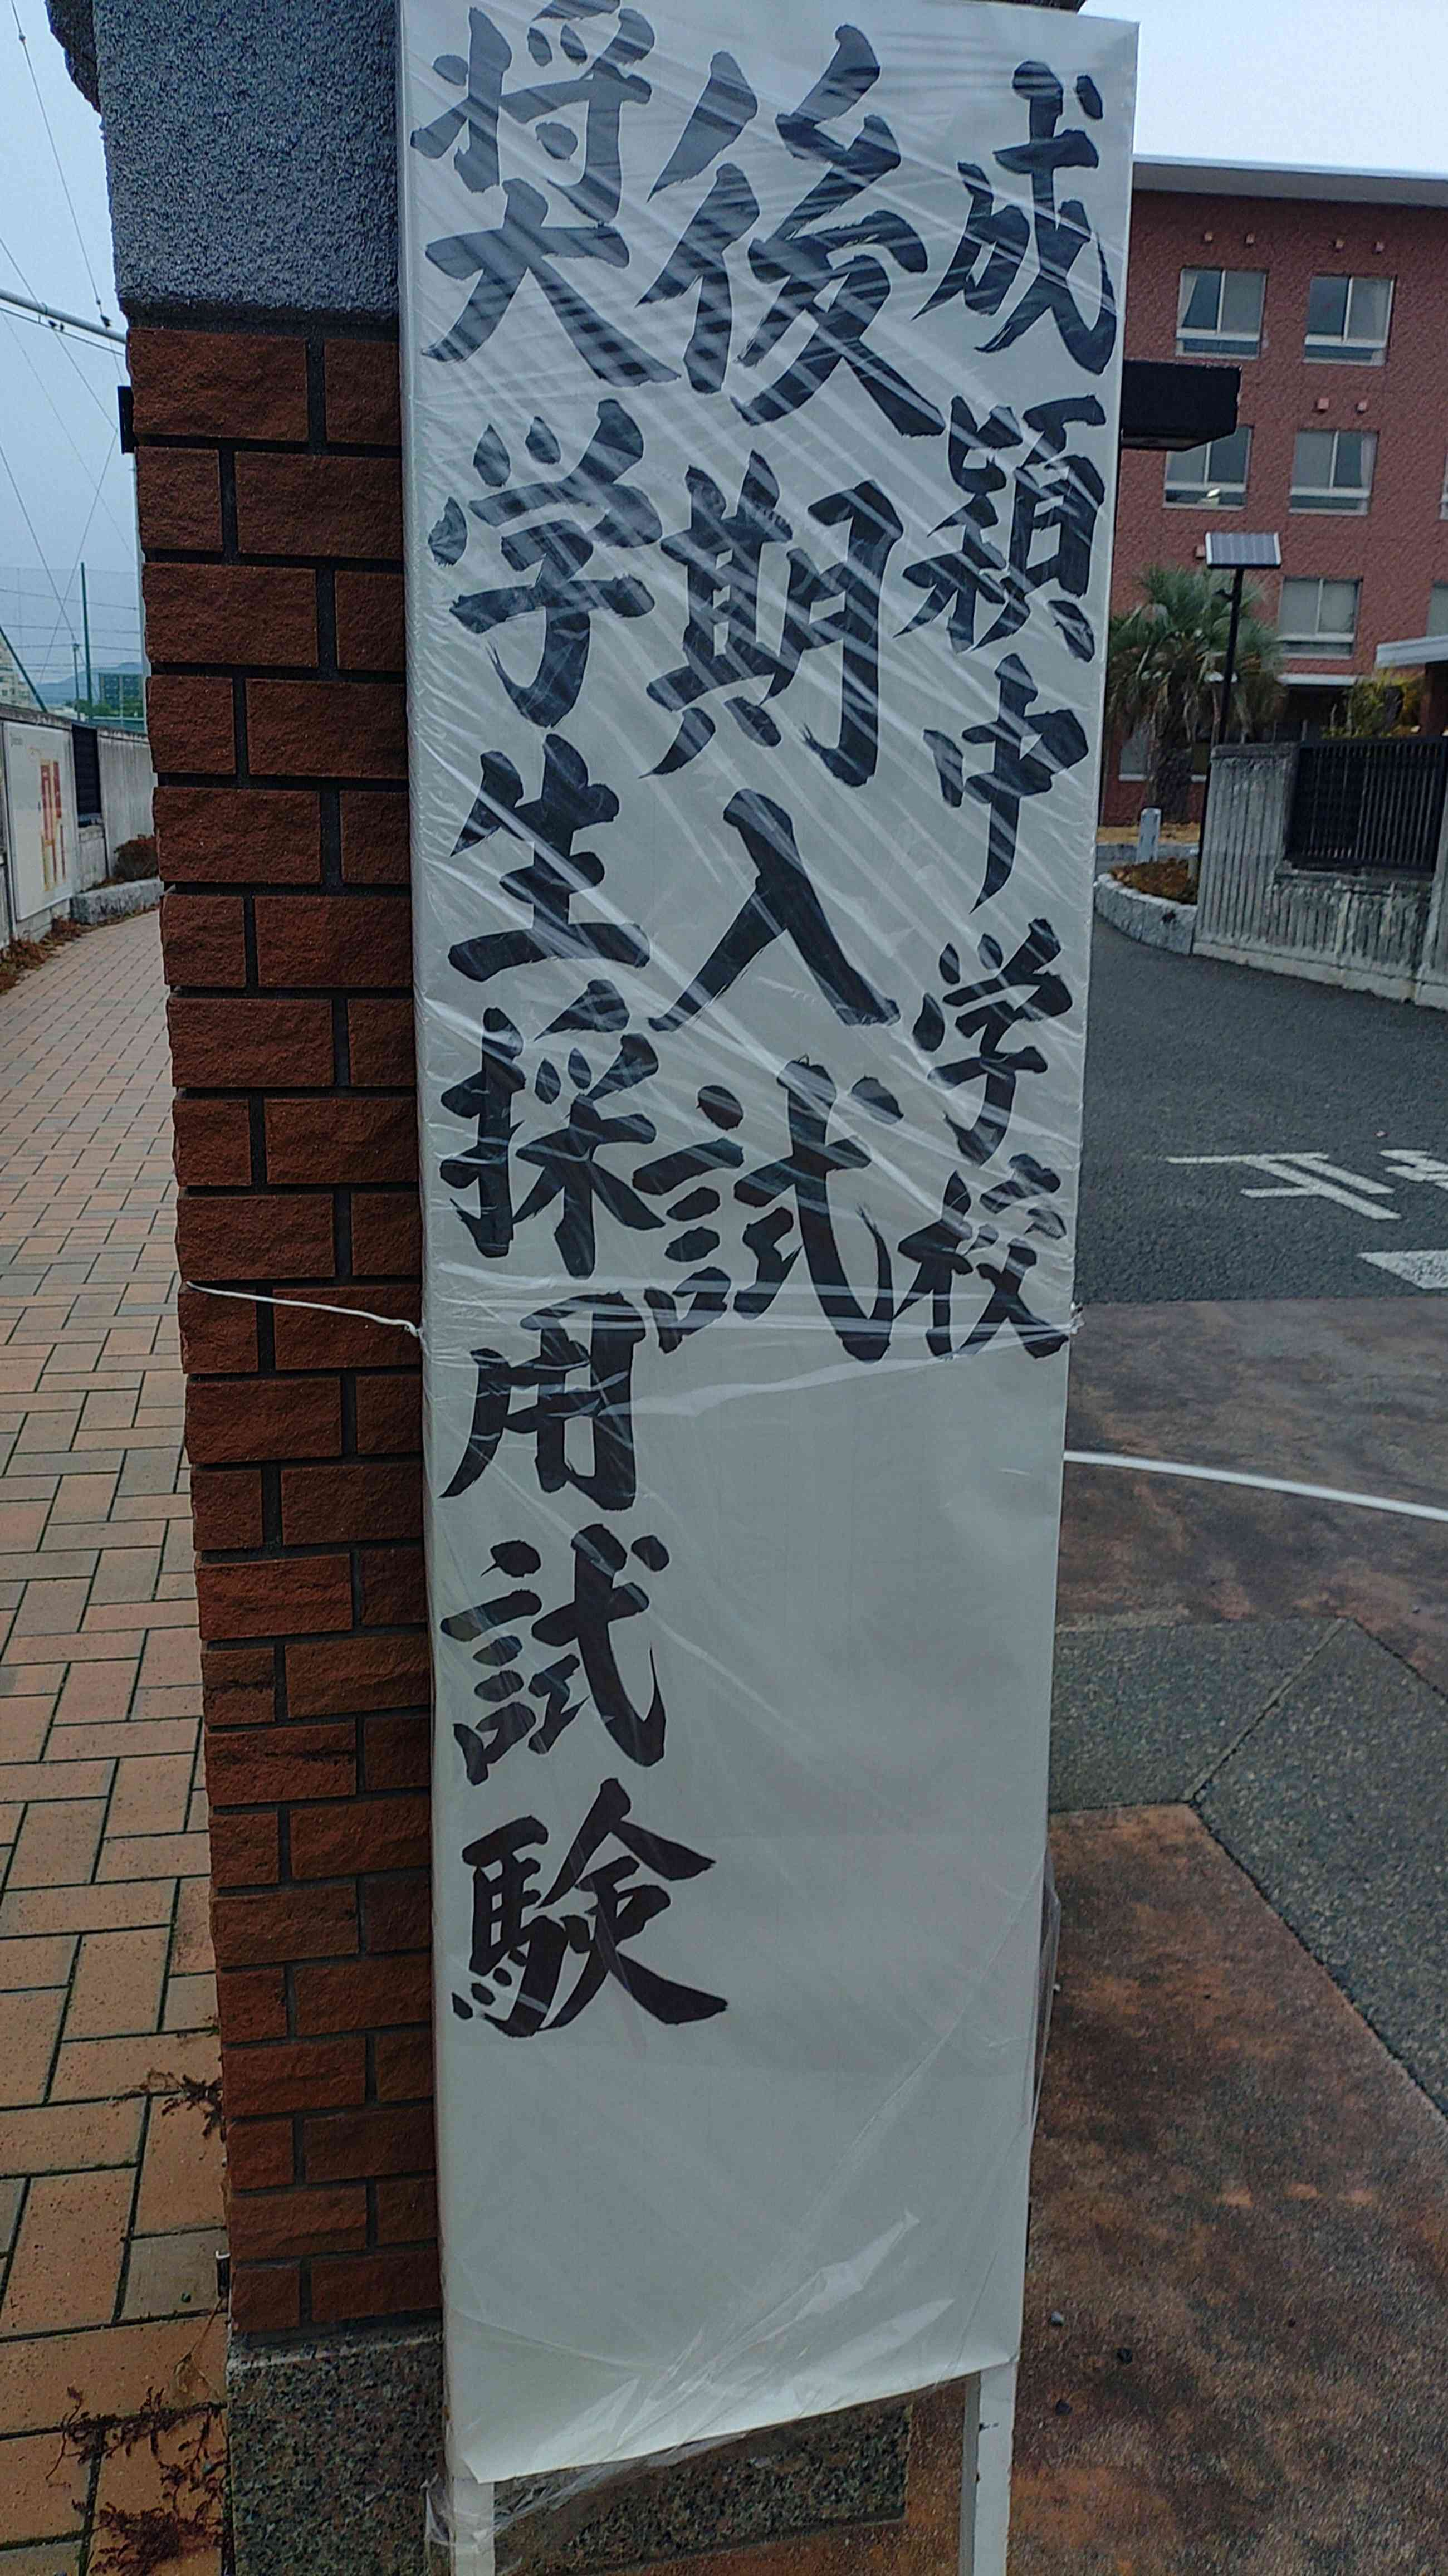 成穎中学校
後期入試
奨学生採用試験